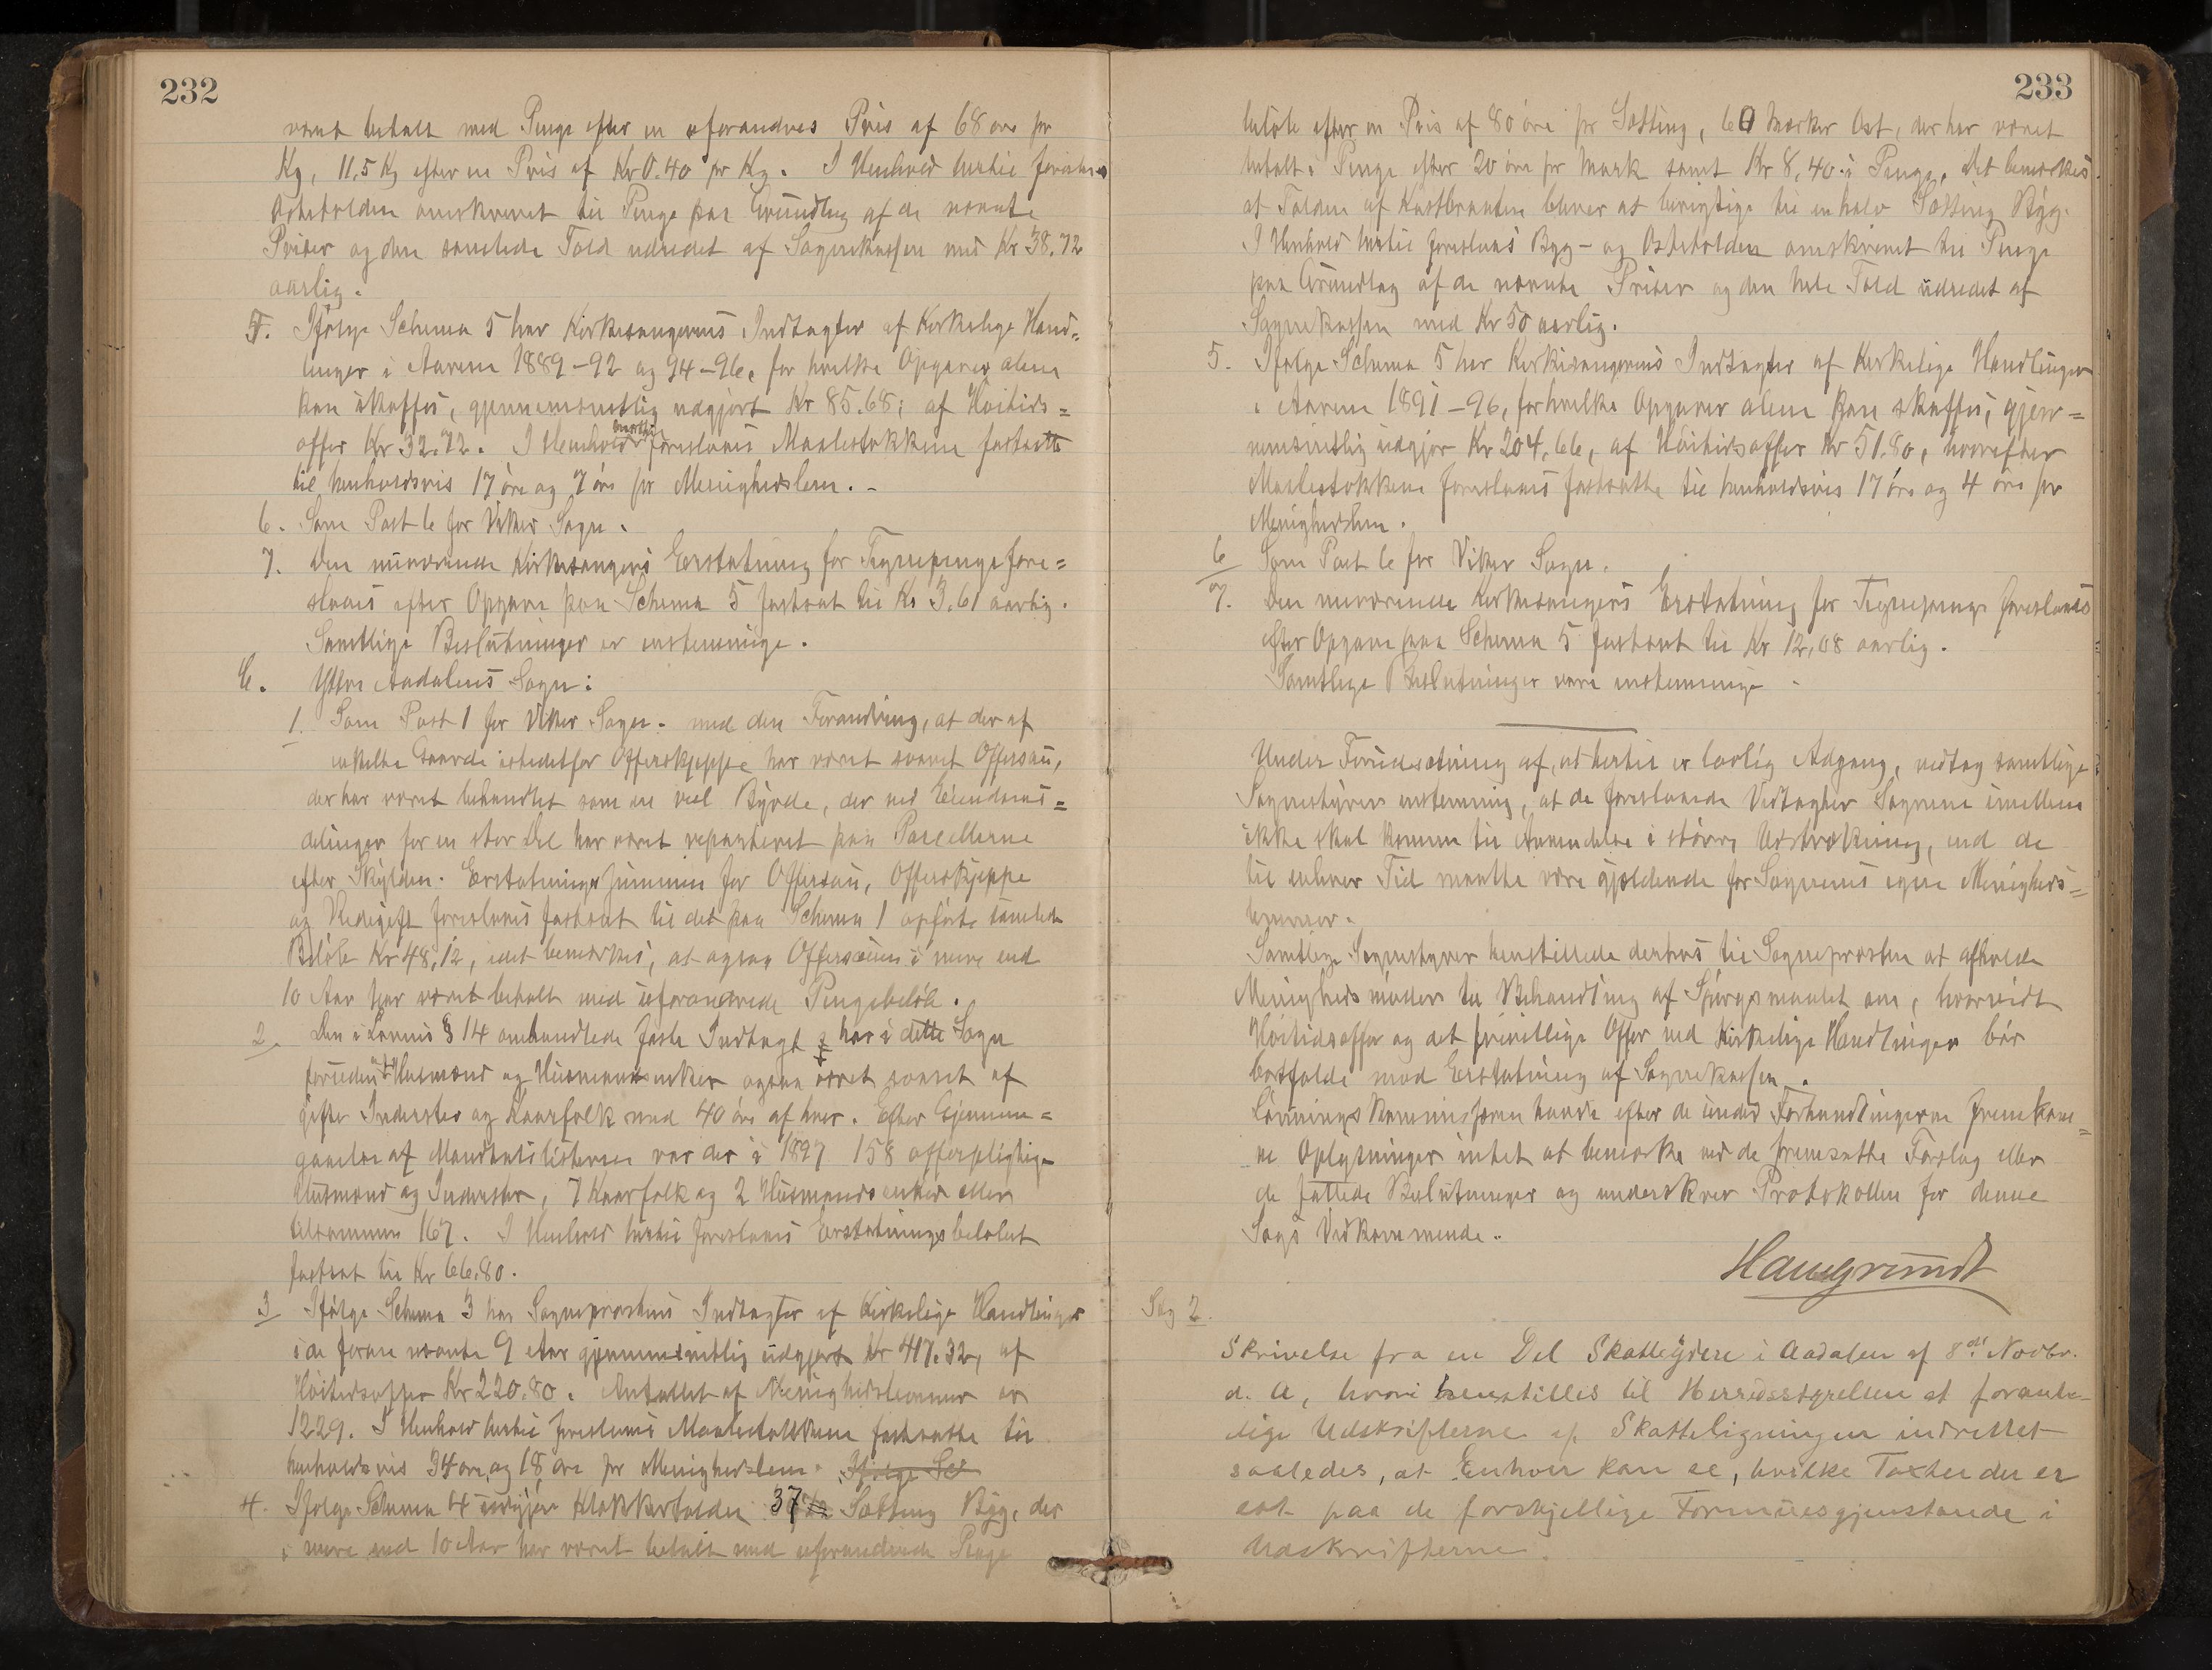 232
været betalt med Penge efter en uforandret Pris af 68 øre pr
Kg, 11,5 Kg efter en Pris af Kr 0.40 pr Kg. I Henhold hertil foreslaaes
Ostetolden omskrevet til Penge paa Grundlag af de nævnte
Priser og den samlede Told udredet af Sognekassen med Kr 38.72
aarlig.
5. Ifølge Schema 5 har Kirkesangerens Indtægter af Kirkelige Hand=
linger i Aarene 1889-92 og 94-96, for hvilke Opgaver alene
kan skaffes, gjennemsnitlig udgjort Kr 85.68; af Høitids=
offer Kr 32.72. I Henhold hertil foreslaaes Maalestokkene fastsatte
til henholdsvis 17 øre og 7 øre pr Menighedslem. -
6. Som Post 6 for Viker Sogn.
7. Den nuværende Kirkesangers Erstatning for Tegnepenge fore=
slaaes efter Opgave paa Schema 5 fastsat til Kr 3.61 aarlig.
Samtlige Beslutninger er enstemmige.
C. Ytre Aadalens Sogn:
1. Som Post 1 for Viker Sogn. med den Forandring, at der af
enkelte Gaarde istedetfor Offerskjeppe har været svaret Offersau,
der har været behandlet som en reel Byrde, der ved Eiendoms=
delinger for en stor Del har været repartieret paa Parcellerne
efter Skylden. Erstatningssummen for Offersau, Offerskjeppe
og Redegift foreslaaes fastsat til det paa Schema 1 opførte samlede
Beløb Kr 48,12, idet bemærkes, at ogsaa Offersauen i mere end
10 Aar har været betalt med uforandrede Pengebeløb.
2. Den i Lovens § 14 omhandlede faste Indtægt har i dette Sogn
foruden af Husmænd og Husmandsenker ogsaa været svaret af
gifte Inderster og Kaarfolk med 40 øre af hver. Efter Gjennem=
gaaelse af Mandtalslisterne var der i 1897 158 offerpligtige
Husmænd og Inderster, 7 Kaarfolk og 2 Husmandsenker eller
tilsammen 167. I Henhold hertil foreslaaes Erstatningsbeløbet
fastsat til Kr 66.80.
3 Ifølge Schema 3 har Sognepræstens Indtægter af Kirkelige Handlinger
i de foran nævnte 9 Aar gjennemsnitlig udgjort Kr 417.32, af
Høitidsoffer Kr 220.80. Antallet af Menighedslemmer er
1229. I Henhold hertil foreslaaes Maalestokkene fastsatte til
henholdsvis 34 øre og 18 øre pr Menighedslem. Ifølge Sch
4. Ifølge Schema 4 udgjør Klokkertolden 37 Sætting Byg, der
i mere end 10 Aar har været betalt med uforandrede Penge
233
beløb efter en Pris af 80 øre pr Sætting, 60 Marker Ost, der har været
betalt i Penge efter 20 øre pr Mark samt Kr 8,40 i Penge. Det bemærkes
at Tolden af Kastbraaten bliver at berigtige til en halv Sætting Byg.
I Henhold hertil foreslaaes Byg- og Ostetolden omskrevet til Penge
paa Grundlag af de nævnte Priser og den hele Told udredet af
Sognekassen med Kr 50 aarlig.
5. Ifølge Schema 5 har Kirkesangerens Indtægter af Kirkelige Handlinger
i Aarene 1891-96, for hvilke Opgaver alene kan skaffes, gjen=
nemsnitlig udgjor Kr 204,66, af Høitidsoffer Kr 51.80, hvorefter
Maalestokkene foreslaaes fastsatte til henholdsvis 17 øre og 4 øre pr
Menighedslem.
6 Som Post 6 for Viker Sogn.
og
7. Den nuværende Kirkesangers Erstatning for Tegnepenge foreslaaes
efter Opgave paa Schema 5 fastsat til Kr 12,08 aarlig.
Samtlige Beslutninger vare enstemmige -
Under Forudsætning af, at hertil er lovlig Adgang, vedtog samtlige
Sognestyrer enstemmig, at de foreslaaede Vedtægter Sognene imellem
ikke skal komme til Anvendelse i større Udstrækning, end de
til enhver Tid maatte være gjældende for Sognenes egne Menigheds=
lemmer.
Samtlige Sognestyrer henstillede derhos til Sognepræsten at afholde
Menighedsmøder til Behandling af Spørgsmaalet om, hvorvidt
Høitidsoffer og det frivillige Offer ved Kirkelige Handlinger bør
bortfalde mod Erstatning af Sognekassen.
Lønningskommissionen havde efter de under Forhandlingerne fremkom=
ne Oplysninger intet at bemærke ved de fremsatte Forslag eller
de fattede Beslutninger og underskrev Protokollen for denne
Sags Vedkommende.
Haugrundt
Sag 2.
Skrivelse fra en Del Skatteydere i Aadalen af 8de Novbr.
d. A, hvori henstilles til Herredsstyrelsen at foranle-
dige Udskrifterne af Skatteligningen indrettet
saaledes, at Enhver kan se, hvilke Taxter der er
sat paa de forskjellige Formuesgjenstande i
Udskrifterne.